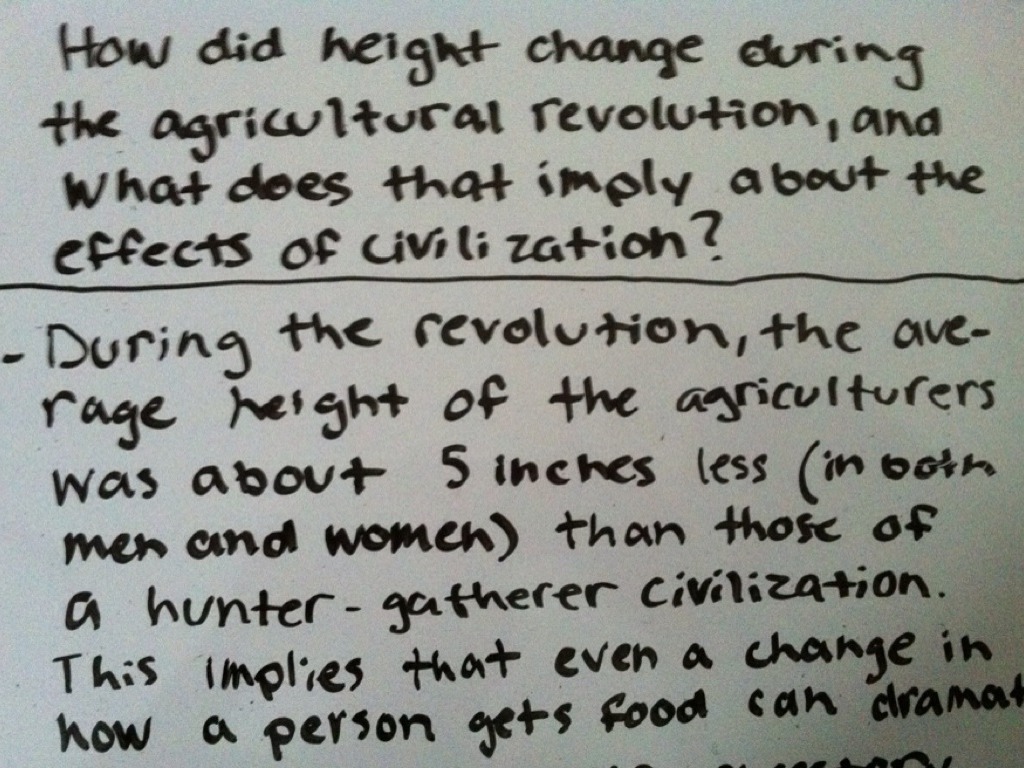 How did height change during
the agricultural revolution, and
what does that imply about the
effects of civilization?
- During the revolution, the ave-
rage height of the agriculturers
was about 5 inches less (in both
men and women) than those of
a hunter-gatherer civilization.
This implies that even a change in
how a person gets food can dramat